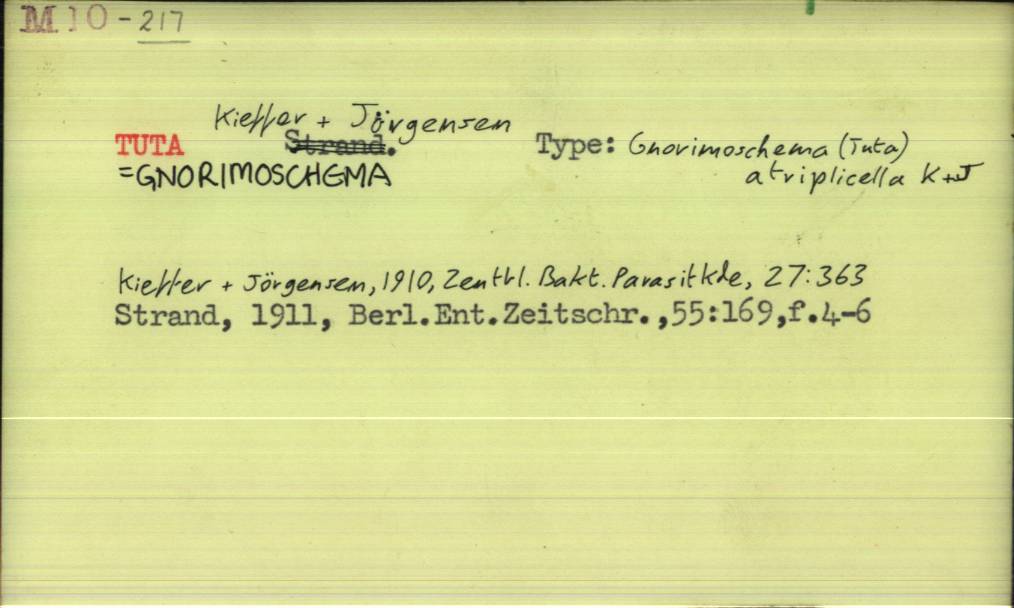 M10-217
Kieffer + Jörgensen
TUTA Strand. Type: Gnorimoschema (Tuta)
=GNORIMOSCHEMA atriplicella K+J
Kieffer + Jörgensen, 1910, Zentbl. Bakt. Parasitkde, 27:363
Strand, 1911, Berl.Ent.Zeitschr.,55:169,f.4-6